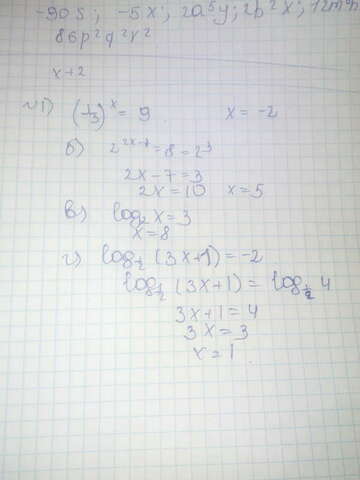 -90s; -5x; 2a⁵y; 2b²x;
86p²q²r²
x+2
√1) (1/3)ˣ = 9 x = -2
б) 2²ˣ⁻⁷ = 8 = 2³
2x - 7 = 3
2x = 10 x = 5
в) log₂ x = 3
x = 8
г) log½ (3x+1) = -2
log½ (3x+1) = log½ 4
3x+1 = 4
3x = 3
x = 1.